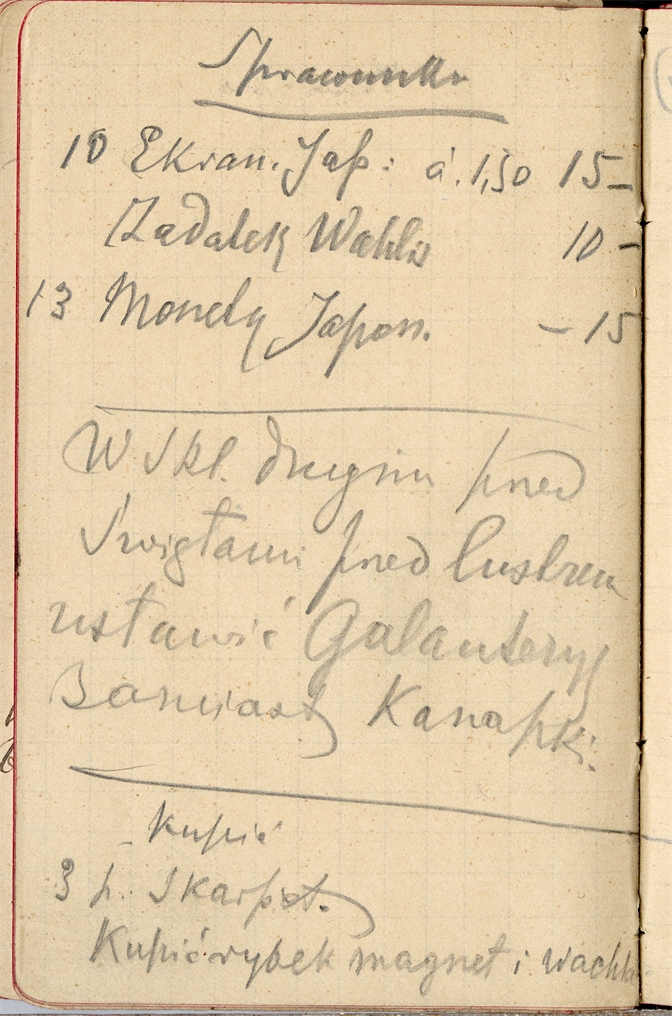 Sprawunki
10 Ekran. Jap: á. 1,50 15-
Zadatek 10-
13 Monety Japon. - 15
W Skl. drugim przed
Świętami przed lustrem
ustawić Galanteryę
Zamiast Kanapki.
- Kupić
3 p. Skarpet.
Kupić rybek magnet i